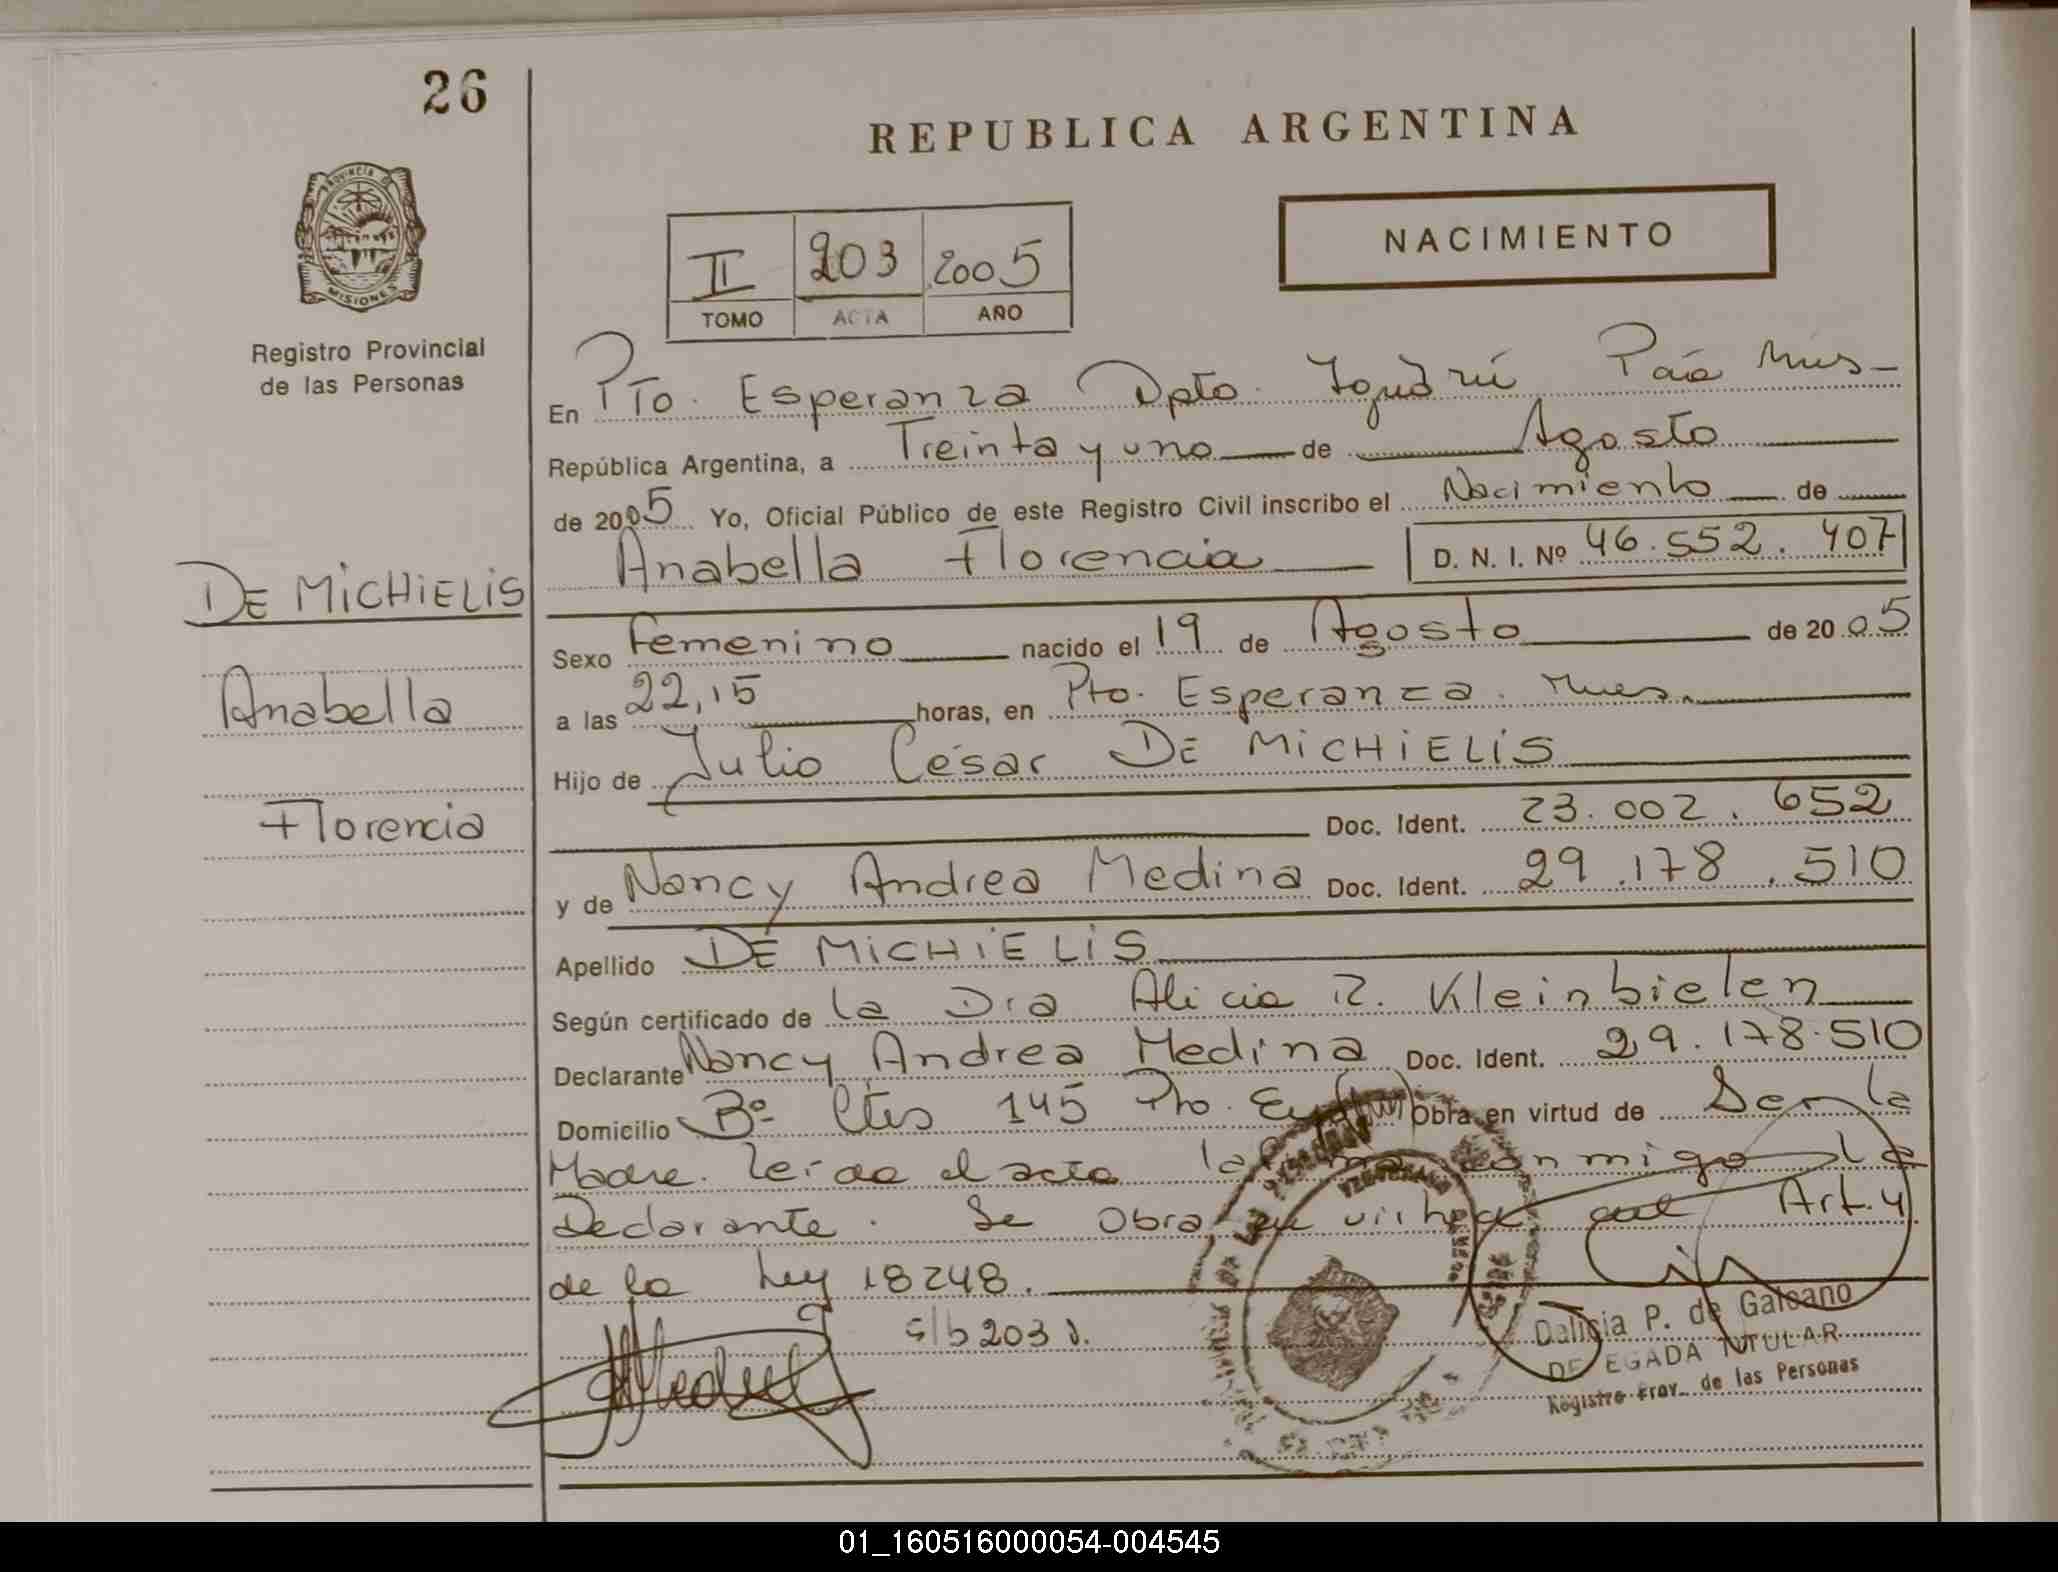 26
REPUBLICA ARGENTINA
PROVINCIA DE
MISIONES
Registro Provincial
de las Personas
II 203 2005
TOMO ACTA AÑO
NACIMIENTO
En Pto. Esperanza Dpto. Iguazú Pcia Mnes-
República Argentina, a Treinta y uno de Agosto
de 2005 Yo, Oficial Público de este Registro Civil inscribo el Nacimiento de
Anabella Florencia D. N. I. Nº 46.552.407
DE MiCHiELiS
Anabella
Florencia
Sexo Femenino nacido el 19 de Agosto de 2005
a las 22,15 horas, en Pto. Esperanza. Mnes.
Hijo de Julio César DE MiCHiELiS
Doc. Ident. 23.002.652
y de Nancy Andrea Medina Doc. Ident. 29.178.510
Apellido DE MiCHiELiS
Según certificado de la Dra Alicia R. Kleinbielen
Declarante Nancy Andrea Medina Doc. Ident. 29.178.510
Domicilio Bº 145 Pto. Obra en virtud de Ser la
Madre. leida el acta la conmigo la
Declarante. Se Obra en virtud del Art. 4
de la Ley 18248.
s/b 203
Dalisia P. de Galeano
DELEGADA TITULAR
Registro Prov. de las Personas
01_160516000054-004545